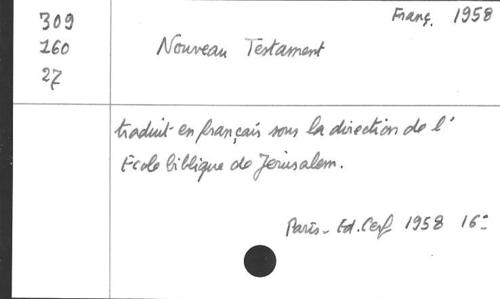 309
160
27
Franç. 1958
Nouveau Testament
traduit en français sous la direction de l'
Ecole biblique de Jérusalem.
Paris - Ed. Cerf 1958 16°